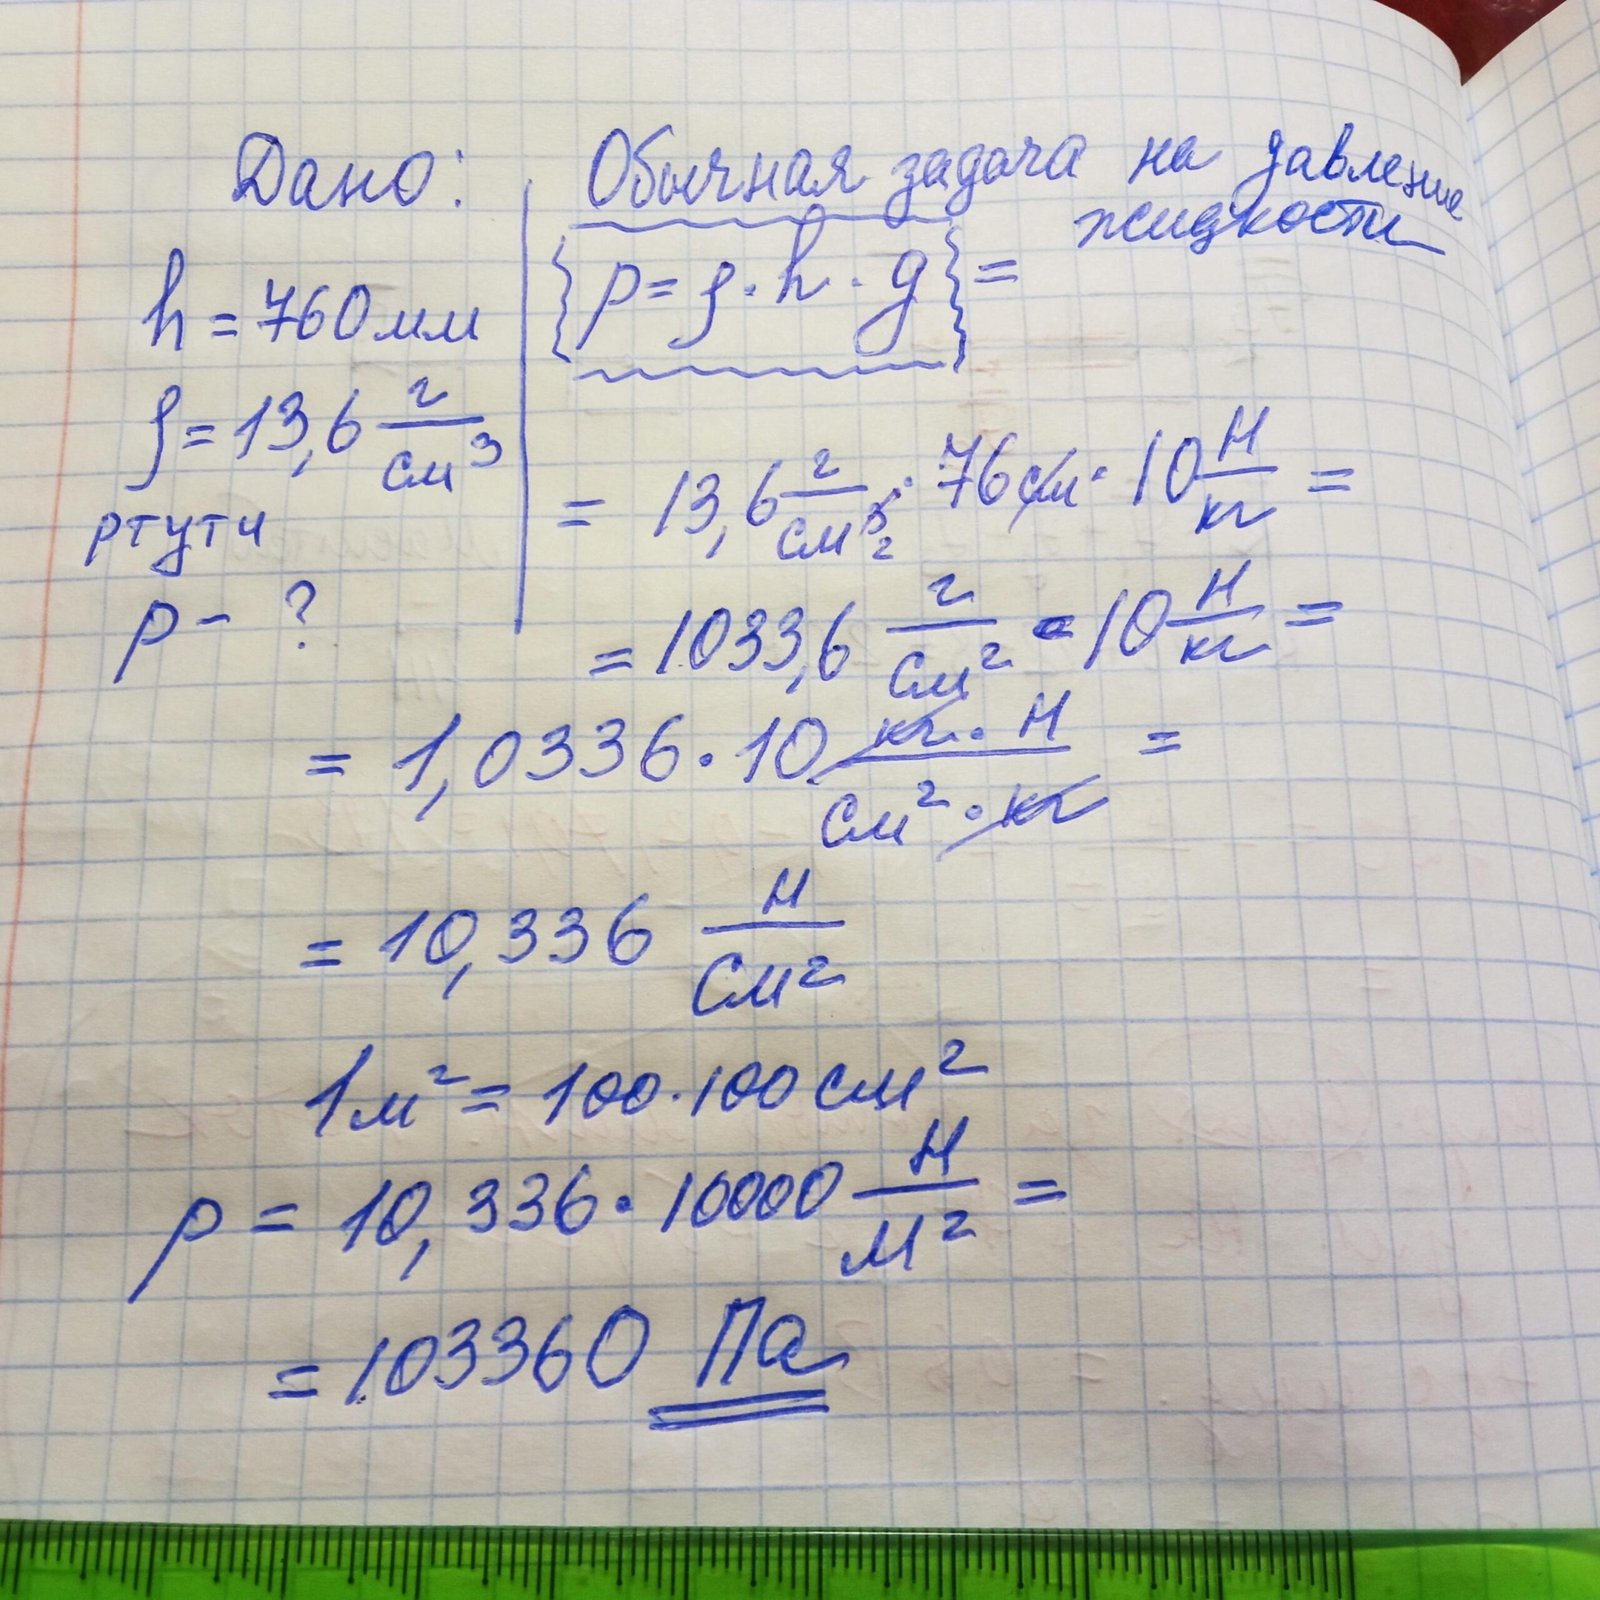 Дано:
h = 760 мм
ρ = 13,6 г/см³
ртути
p - ?
Обычная задача на давление
жидкости
p = ρ · h · g =
= 13,6 г/см³ ₂ · 76 см · 10 Н/кг =
= 1033,6 г/см² · 10 Н/кг =
= 1,0336 · 10 кг · Н / см² · кг =
= 10,336 Н/см²
1 м² = 100 · 100 см²
p = 10,336 · 10000 Н/м² =
= 103360 Па